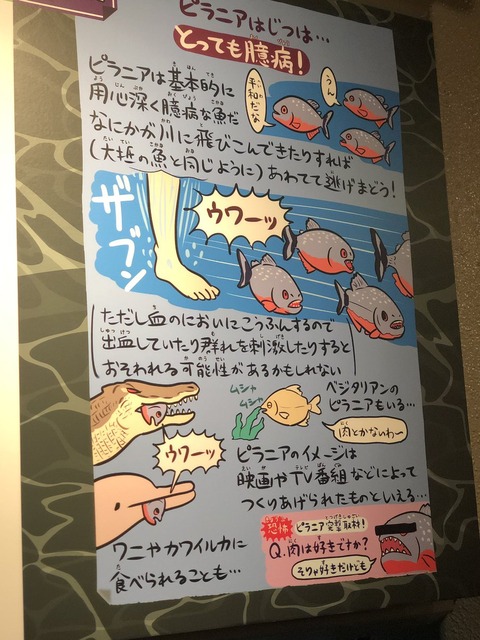 ピラニアはじつは…
とっても臆病！
ピラニアは基本的に
用心深く臆病な魚だ
平和だな
うん
なにかが川に飛びこんできたりすれば
(大抵の魚と同じように)あわてて逃げまどう！
ザブン
ウワーッ
ただし血のにおいにこうふんするので
出血していたり群れを刺激したりすると
おそわれる可能性があるかもしれない
ムシャ
ムシャ
ベジタリアンの
ピラニアもいる…
肉とかないわ〜
ウワーッ
ワニやカワイルカに
食べられることも…
ピラニアのイメージは
映画やTV番組などによって
つくりあげられたものといえる…
恐怖
ピラニア完撃取材！
Q.肉は好きですか？
そりゃ好きだけども